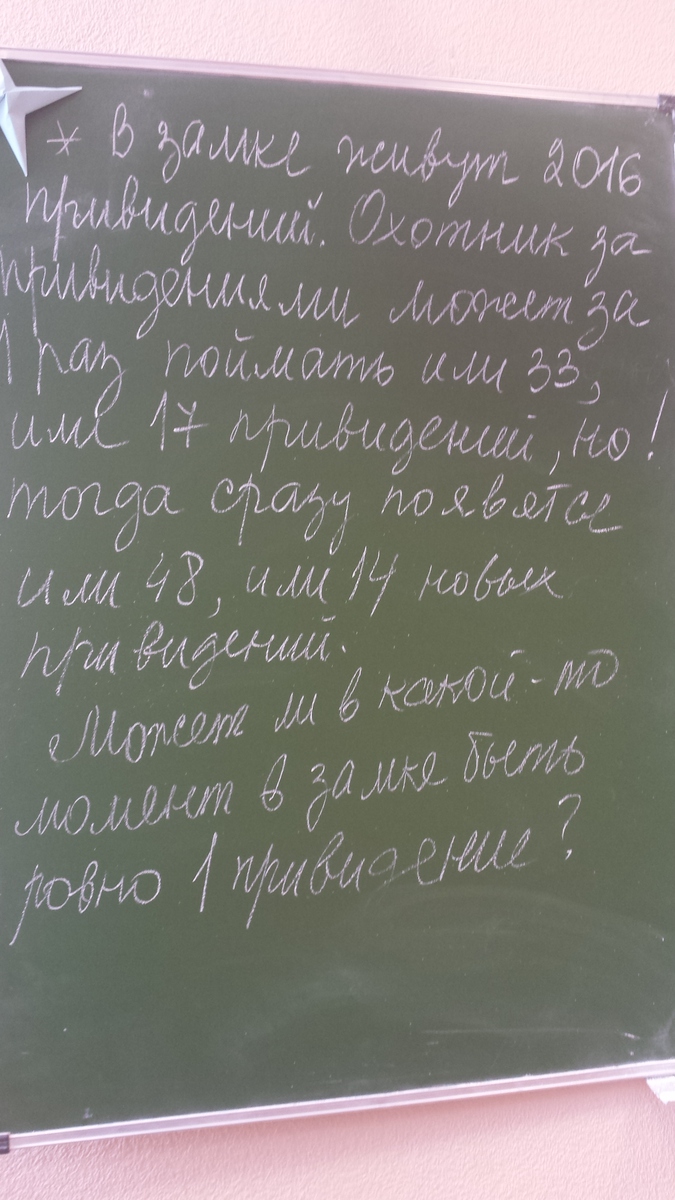 * В замке живут 2016
привидений. Охотник за
привидениями может за
1 раз поймать или 33,
или 17 привидений, но!
тогда сразу появятся
или 48, или 14 новых
привидений.
Может ли в какой-то
момент в замке быть
ровно 1 привидение?